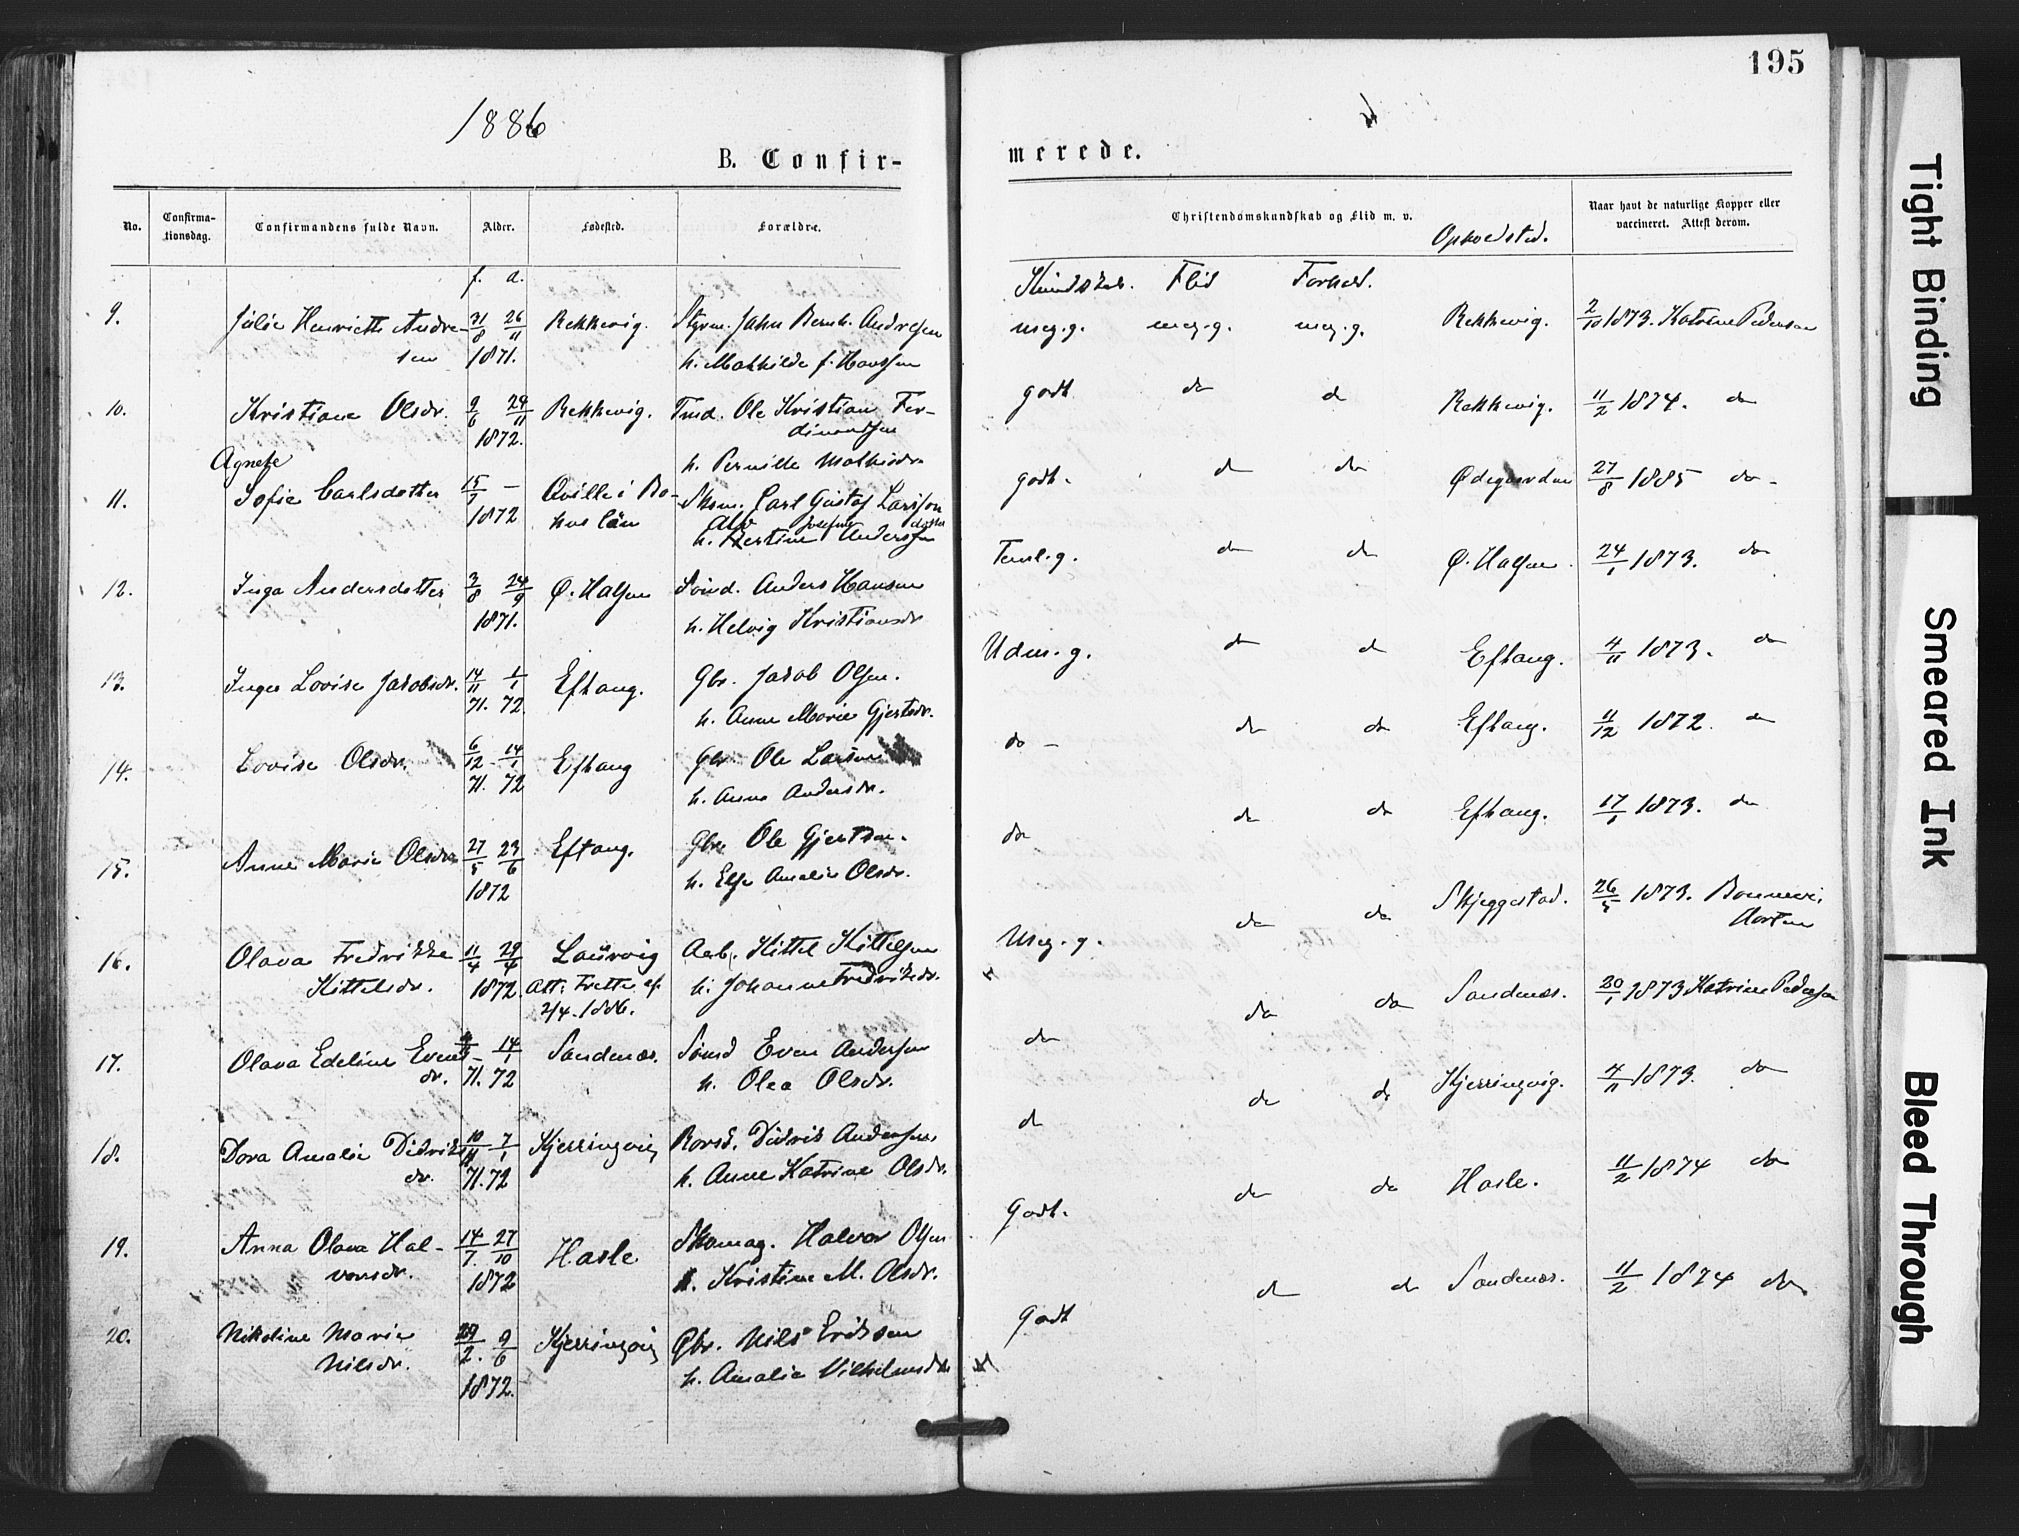 195
1886
B. Confir- merede.
No. Confirma-tionsdag. Confirmandens fulde Navn. Alder. Fødested. Forældre. Christendomskundskab og Flid m. v. Opholdsted. Naar havt de naturlige Kopper eller vaccineret. Attest derom.
f. d. Kundskab. Flid Forhold.
9. Julie Henriette Andre- 31/8 26/11 Rekkevig. Styrm. Jahn Bernh. Andresen meg.g. meg.g. meg.g. Rekkevig. 2/10 1873. Katrine Pedersen
sen 1871. h. Mathilde f. Hanssen
10. Kristiane Olsdr. 9/6 24/11 Rekkevig. Tmd. Ole Kristian Fer- godt do d Rekkevig. 11/2 1874. do
1872. dinandsen
h. Pernille Mathisdr
Agnete
11. Sofie Carlsdotter 15/7 – Qville i Bo- Skom. Carl Gustaf Larsson godt. do do Ødegaarden 27/8 1885 do -
1872 hus län Josefine dotter
h. Andersen
12. Inga Andersdotter 3/8 24/9 Ø. Halsen Sømd. Anders Hansen Teml.g. do do Ø. Halsen 24/1 1873. do
1871. h. Helvig Kristiansdr
13. Inger Lovise Jakobsdr. 14/11 1/1 Eftang. Gbr. Jakob Olsen. Udm. g. do do Eftang. 4/11 1873. do
71. 72. h. Anne Marie Gjertsdr.
14. Lovise Olsdr. 6/12 - 14/1 Eftang Gbr Ole Larsen do - do do Eftang. 11/12 1872. do
71. 72 h. Anne Andersdr.
15. Anne Marie Olsdr 27/5 23/6 Eftang. Gbr. Ole Gjertsen. do do do Eftang. 17/1 1873. do
1872 h. Else Amalie Olsdr.
16. Olava Fredrikke 11/4 29/4 Laurvig Arb. Kittel Kittelsen Meg. g. do do Skjeggestad. 26/5 1873. Bonnevi,
Kittelsdr. 1872. Att: Frette af h. Johanne Fredriksdr. Horten
2/4. 1886.
17. Olava Edeline Evens – 14/1 Sandenæs. Sømd Even Andersen do do do Sandenæs. 20/1 1873 Katrine Pedersen
dr. 71. 72 h. Olea Olsdr.
18. Dora Amalie Didriks 10/11 - 7/1 Kjerringvig Borsk. Didrik Andersen, do do do Kjerringvig. 4/11 1873. do
dr. 71. 72 h. Anne Katrine Olsdr.
19. Anna Olava Hal- 14/7. 27/10 Hasle Skomag. Halvor Olsen Godt. do do Hasle. 11/2 1874 do
vorsdr. 1872 h. Kristine M. Olsdr.
20. Nikoline Marie 2. 9/6 Kjerringvig Gbr. Nils Eriksen Godt do do Sandenæs. 11/2 1874 do
Nilsdr. 1872. h. Amalie Vilhelmsdr
Tight Binding
Smeared Ink
Bleed Through